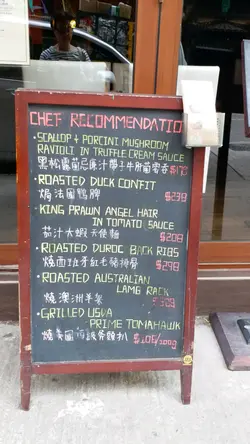 CHEF RECOMMENDATION
• SCALLOP & PORCINI MUSHROOM
RAVIOLI IN TRUFFLE CREAM SAUCE
黑松露葡忌廉汁帶子牛肝菌雲吞
• ROASTED DUCK CONFIT
焗法國鴨脾 $238
• KING PRAWN ANGEL HAIR
IN TOMATO SAUCE
茄汁大蝦天使麵 $208
• ROASTED DUROC BACK RIBS
燒西班牙紅毛豬排骨 $298
• ROASTED AUSTRALIAN
LAMB RACK
燒澳洲羊架
• GRILLED USDA
PRIME TOMAHAWK
燒美國斧頭扒